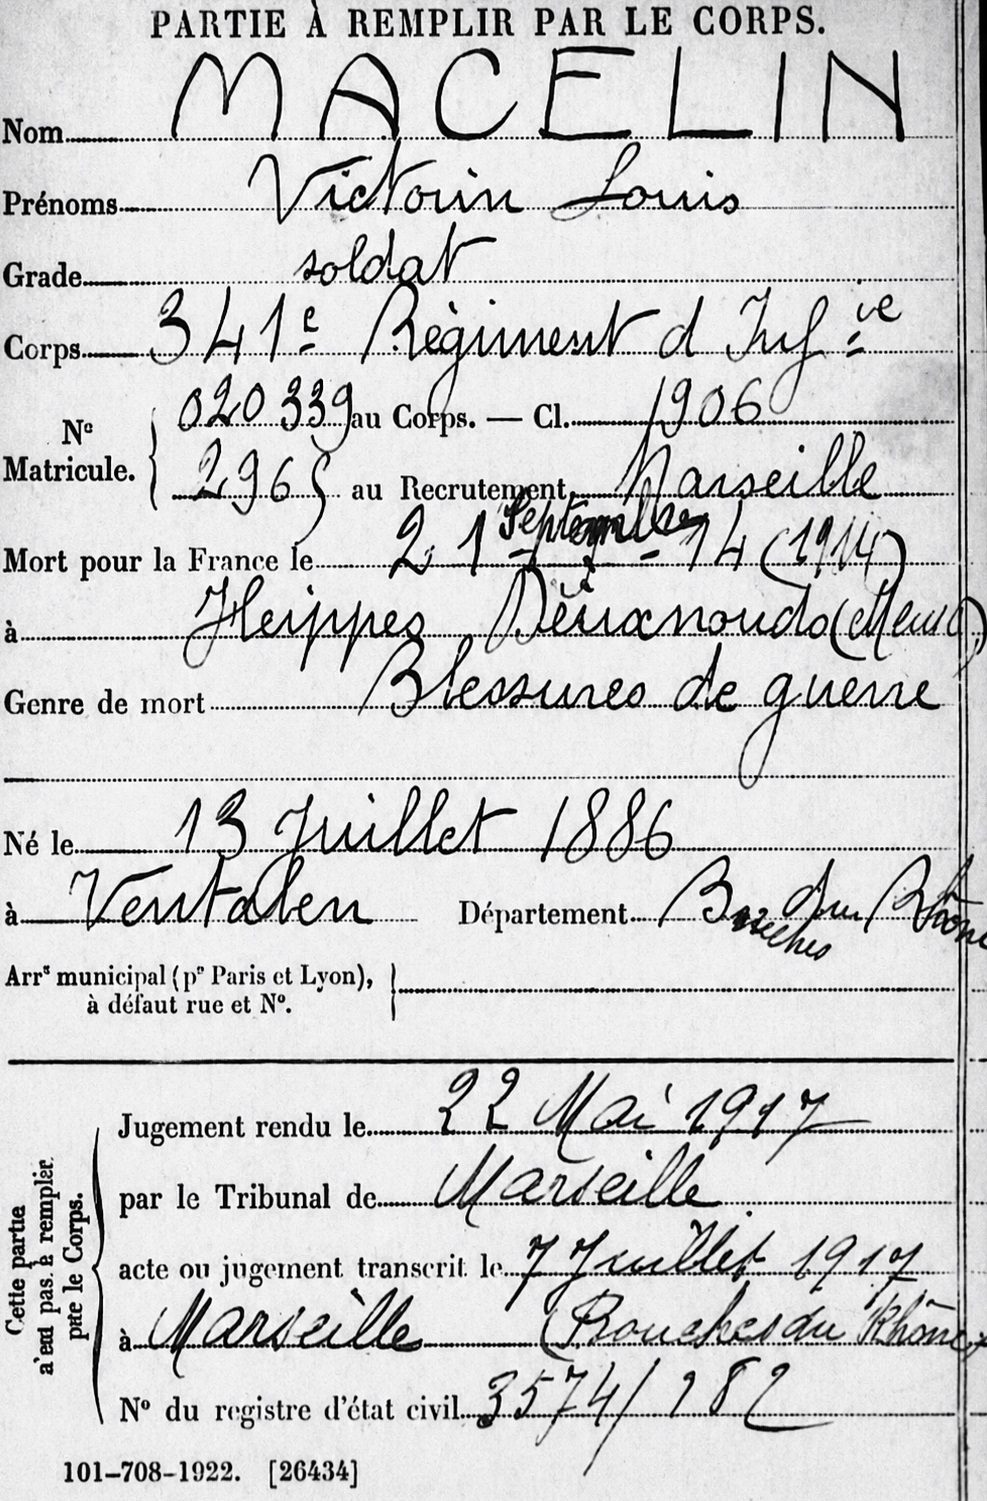 PARTIE À REMPLIR PAR LE CORPS.
Nom MACELIN
Prénoms Victorin Louis
Grade soldat
Corps 341e Régiment d Infie
No Matricule. 020339 au Corps. — Cl. 1906
2965 au Recrutement Marseille
Mort pour la France le 21 Septembre 14 (1914)
à Heippes Deuxnouds (Meuse)
Genre de mort Blessures de guerre
Né le 13 Juillet 1886
à Ventabren Département Bouches du Rhône
Arrt municipal (pr Paris et Lyon),
à défaut rue et No.
Cette partie
n'est pas à remplir
par le Corps.
Jugement rendu le 22 Mai 1917
par le Tribunal de Marseille
acte ou jugement transcrit le 7 Juillet 1917
à Marseille (Bouches du Rhône)
No du registre d'état civil 3574/
101-708-1922. [26434]